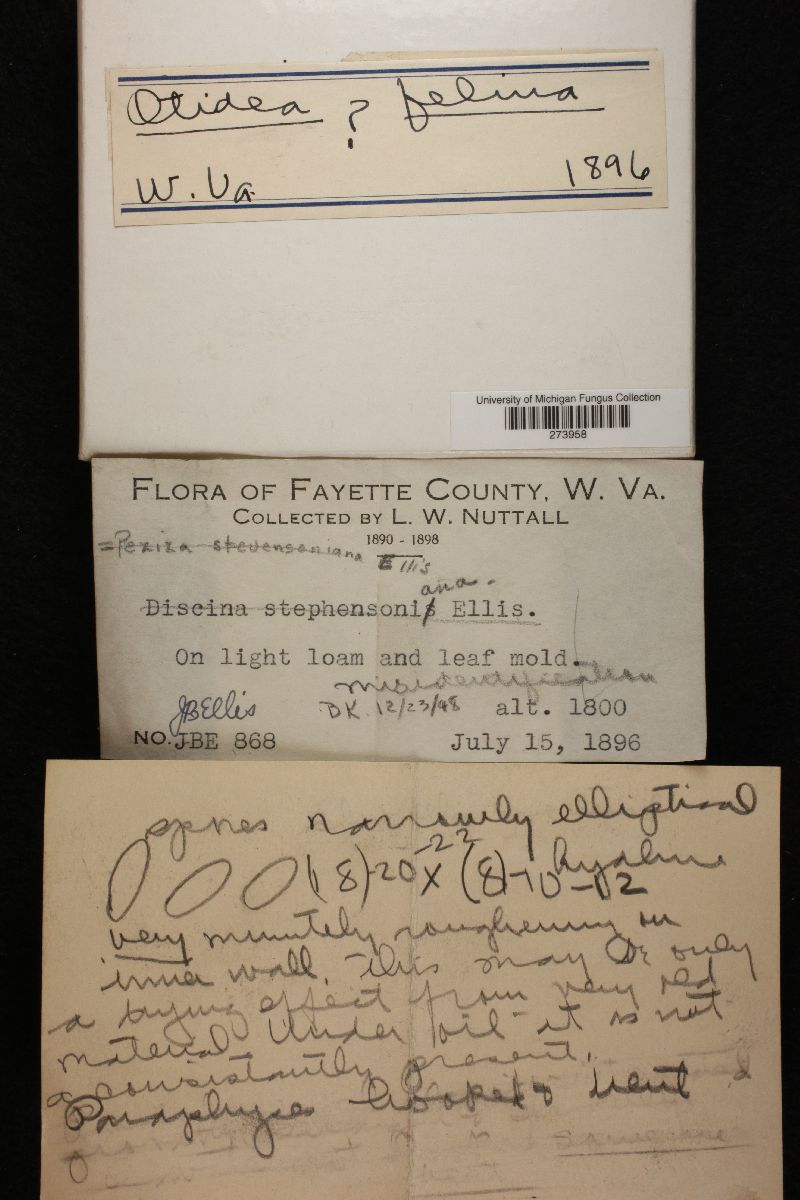 Otidea ? felina
W. Va. 1896
University of Michigan Fungus Collection
273958
FLORA OF FAYETTE COUNTY, W. VA.
COLLECTED BY L. W. NUTTALL
1890 - 1898
= Peziza stevensoniana Ellis
ana.
Discina stephensonis Ellis.
On light loam and leaf mold.
misidentification
JBEllis DK 12/23/98 alt. 1800
NO. JBE 868 July 15, 1896
spores narrowly elliptical
(18)-20-22 x (8)-10-12 hyaline
very minutely roughening on
inner wall. This may be only
a drying effect from very old
material. Under oil it is not
consistantly present.
Paraphyses hooked & bent